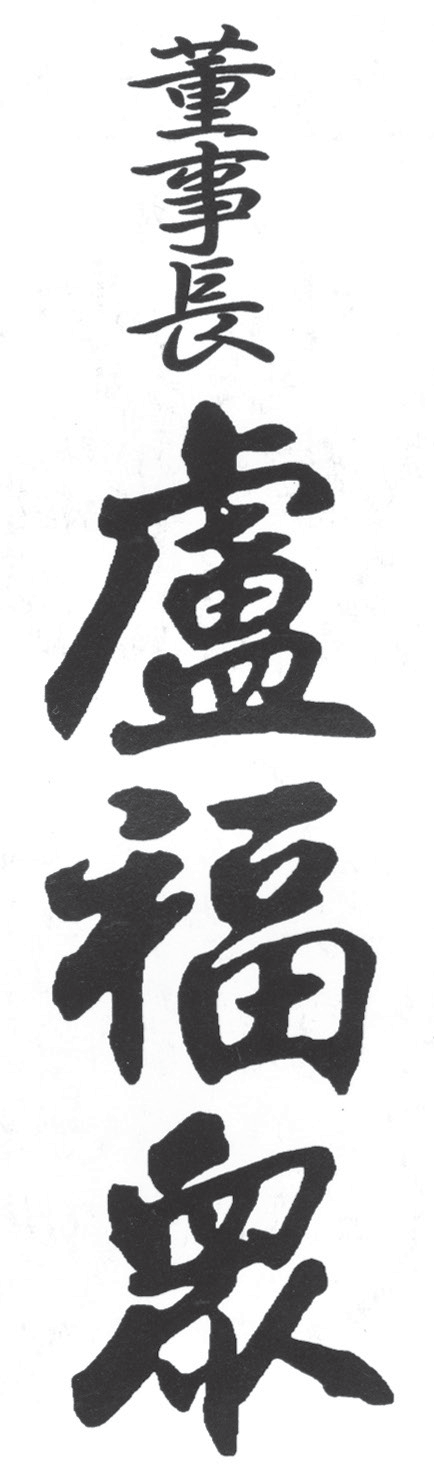 董事長
盧福眾